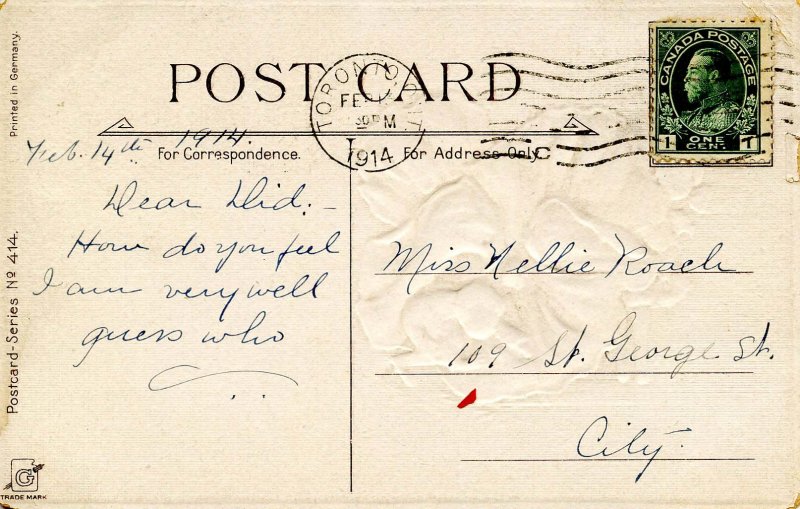 Printed in Germany.
POST CARD
TORONTO, ONT
FE
30PM
1914
CANADA POSTAGE
1 ONE CENT 1
Feb. 14th 1914.
For Correspondence.
For Address Only.
Dear Did. –
How do you feel
I am very well
guess who
Miss Nellie Roach
109 St. George St.
City.
Postcard-Series No 414.
G
TRADE MARK